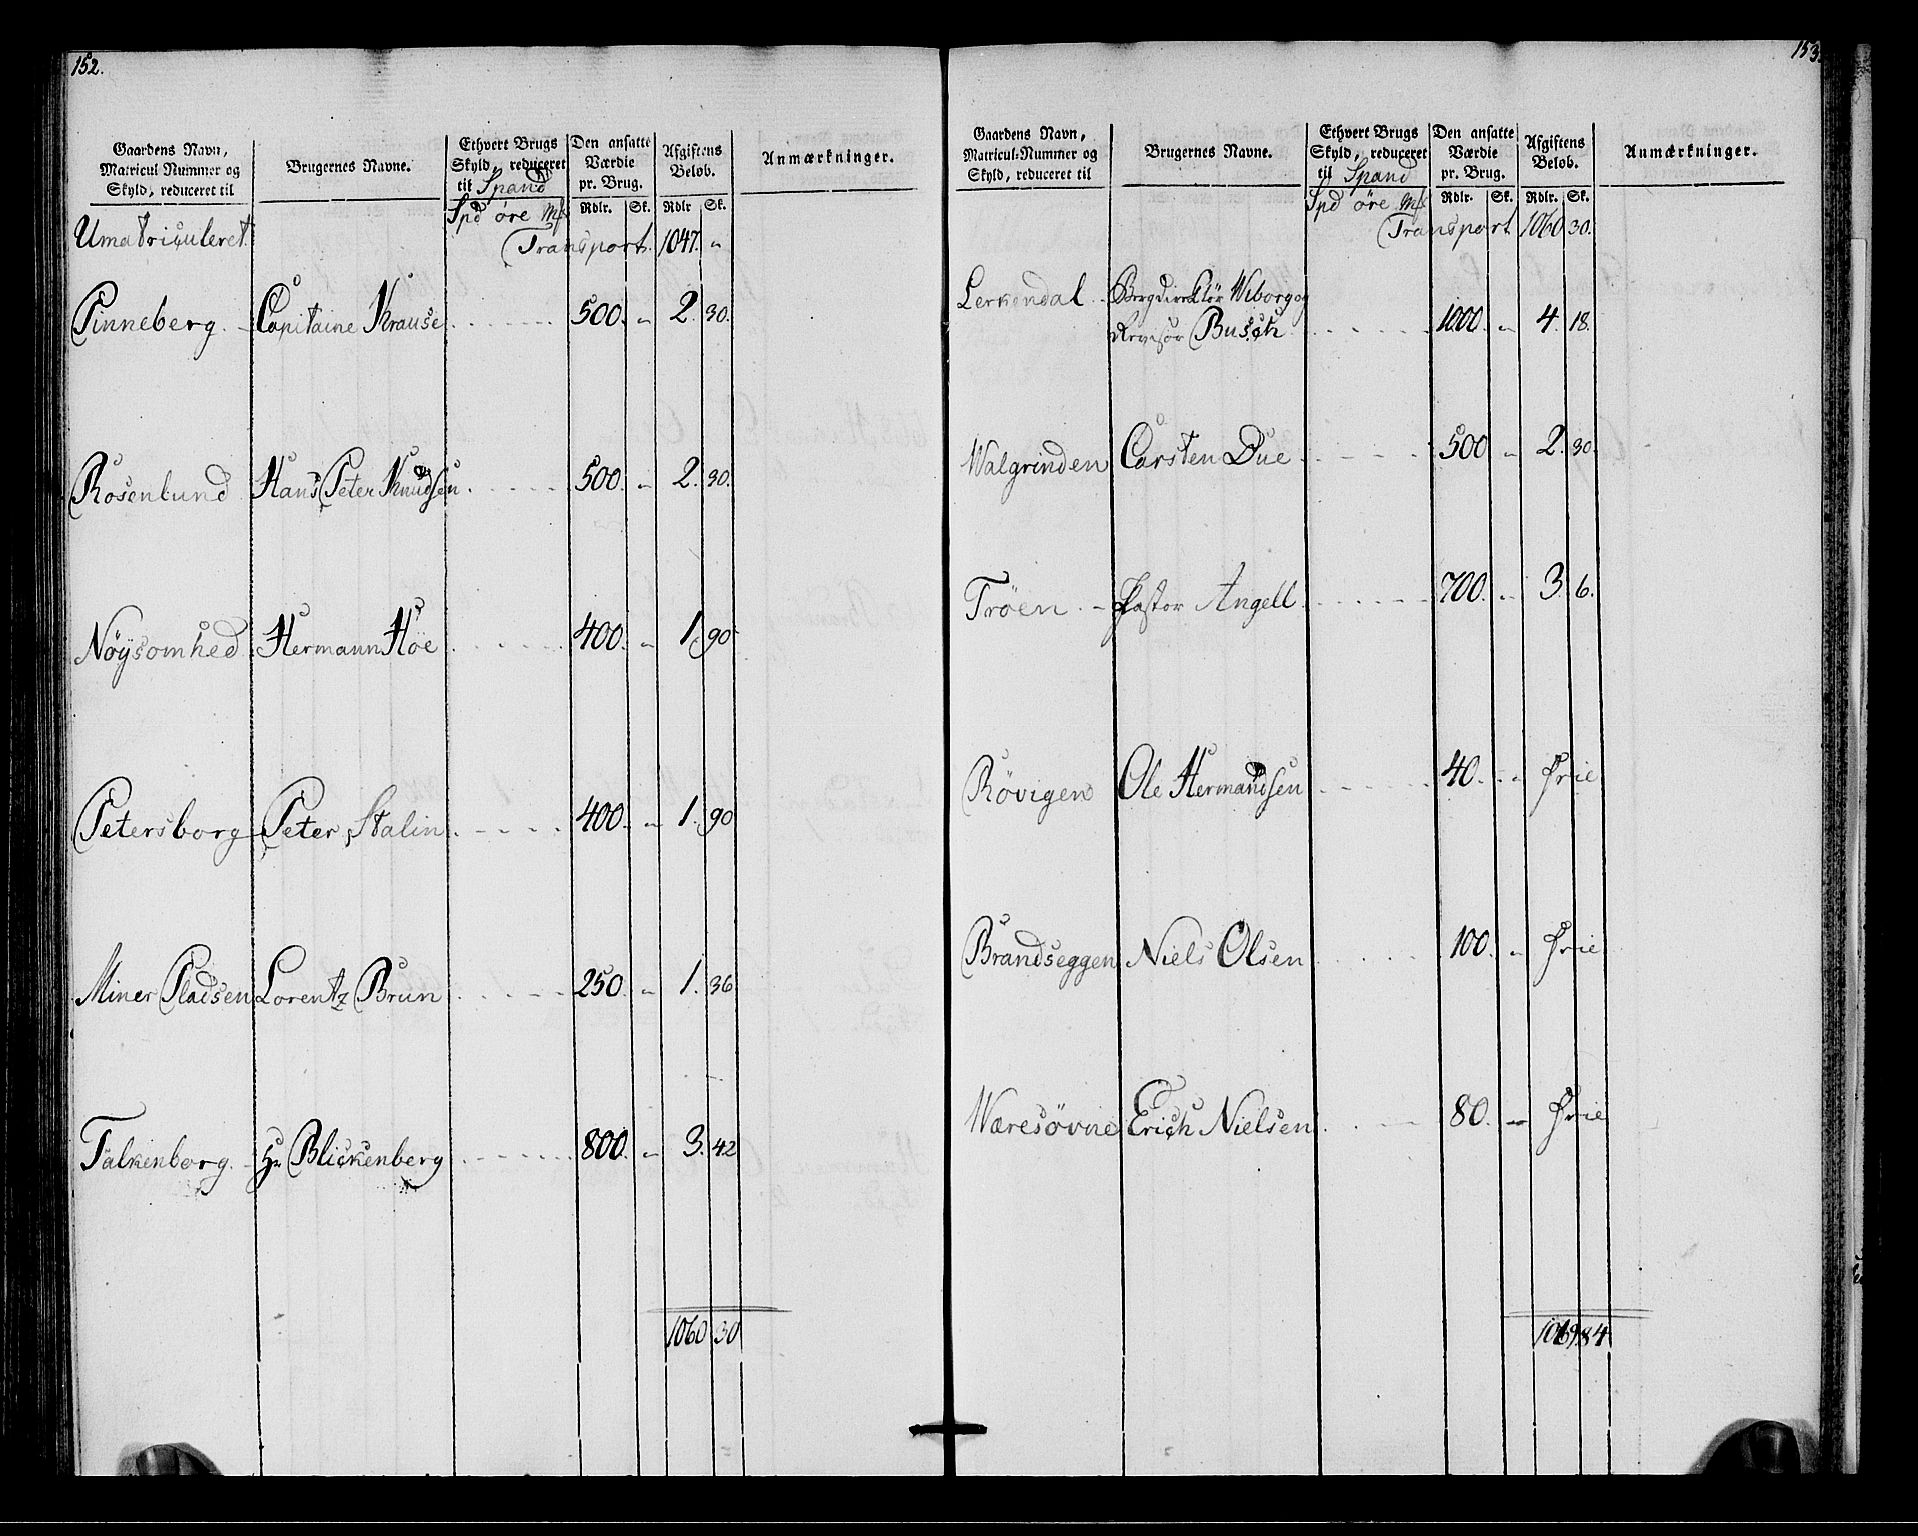 152.
Gaardens Navn, Matricul Nummer og Skyld, reduceret til
Brugernes Navne.
Ethvert Brugs Skyld, reduceret til Spand
Den ansatte Værdie pr. Brug.
Afgiftens Beløb.
Anmærkninger.
Spd øre Mk
Rdlr. Sk. Rdlr Sk.
Umatriculeret
Transport. 1047. "
Pinneberg. Capitaine Krause 500. " 2. 30.
Rosenlund Hans Peter Knudsen 500. " 2. 30.
Nöysomhed Hermann Höe 400. " 1. 90
Petersborg Peter Stalin 400. " 1. 90
Miner Pladsen Lorentz Brun 250. " 1. 36
Falkenborg. Hr Blickenberg 800. " 3. 42
1060 30
153.
Gaardens Navn, Matricul-Nummer og Skyld, reduceret til
Brugernes Navne.
Ethvert Brugs Skyld, reduceret til Spand
Den ansatte Værdie pr. Brug.
Afgiftens Beløb.
Anmærkninger.
Spd øre Mk
Rdlr. Sk. Rdlr. Sk.
Transport 1060 30.
Lerkendal Bergdirektör Wiborg og
Revisor Busch 1000. " 4. 18.
Walgrinden Carsten Due 500 " 2. 30.
Tröen. Pastor Angell 700. " 3. 6.
Rövigen Ole Hermandsen 40. " frie
Brandseggen Niels Olsen 100. " frie
Weresövne Erich Nielsen 80. " frie
1069 84